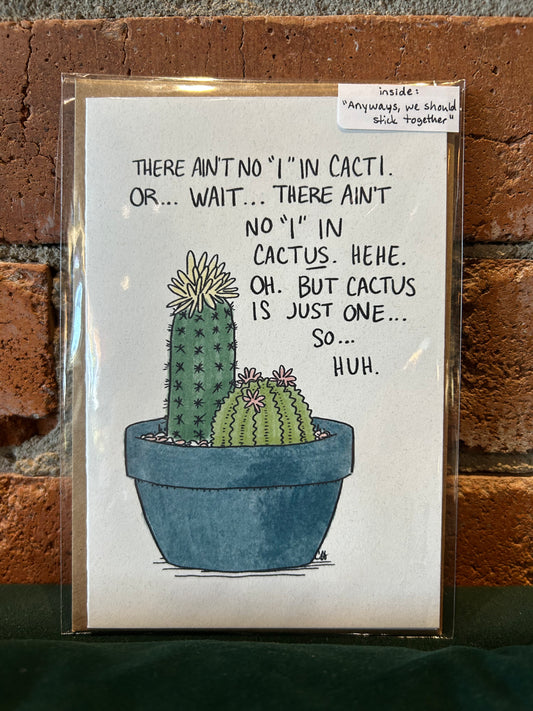 inside:
"Anyways, we should
stick together"
THERE AIN'T NO "I" IN CACTI.
OR... WAIT... THERE AIN'T
NO "I" IN
CACTUS. HEHE.
OH. BUT CACTUS
IS JUST ONE...
SO...
HUH.
CH